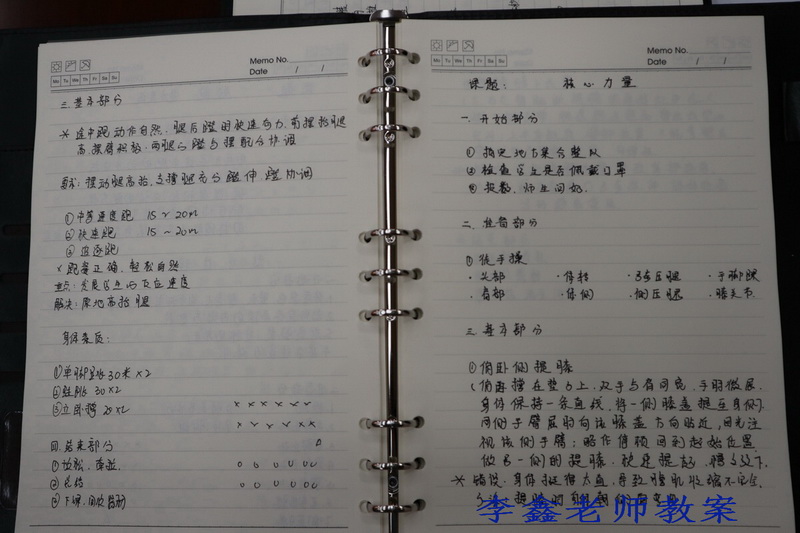 Memo No.
Date / /
Mo Tu We Th Fr Sa Su
三.基本部分
* 途中跑动作自然.腿后蹬的快速有力.前摆抬腿
高.摆臂积极.两腿的蹬与摆配合协调
要求:摆动腿高抬,支撑腿充分蹬伸 蹬协调
①中等速度跑 15~20m
②快速跑 15~20m
③追逐跑
*跑姿正确.轻松自然
重点:发展学生的反应速度
解决:原地高抬腿
身体素质:
①单脚跳30米×2
30×2
③立卧撑 20×2
四.结束部分
①放松.
②总结
③下课.回收器材
Memo No.
Date / /
Mo Tu We Th Fr Sa Su
课题: 核心力量
一.开始部分
①指定地方集合整队
②检查学生是否佩戴口罩
③报数.师生问好.
二.准备部分
①徒手操
·头部 ·体转 ·弓步压腿 ·手脚腕
·肩部 ·体侧 ·侧压腿 ·膝关节.
三.基本部分
①俯卧侧提膝
俯卧撑在垫子上,双手与肩同宽,手肘微屈.
身体保持一条直线,将一侧膝盖提至身侧.
同侧手臂屈肘向该膝盖方向贴近,目光注
视该侧手臂;略作停顿回到起始位置
做另一侧的提膝.快速提起,
* 错误:身体挺得太直,导致腹肌收缩不完全.
李鑫老师教案